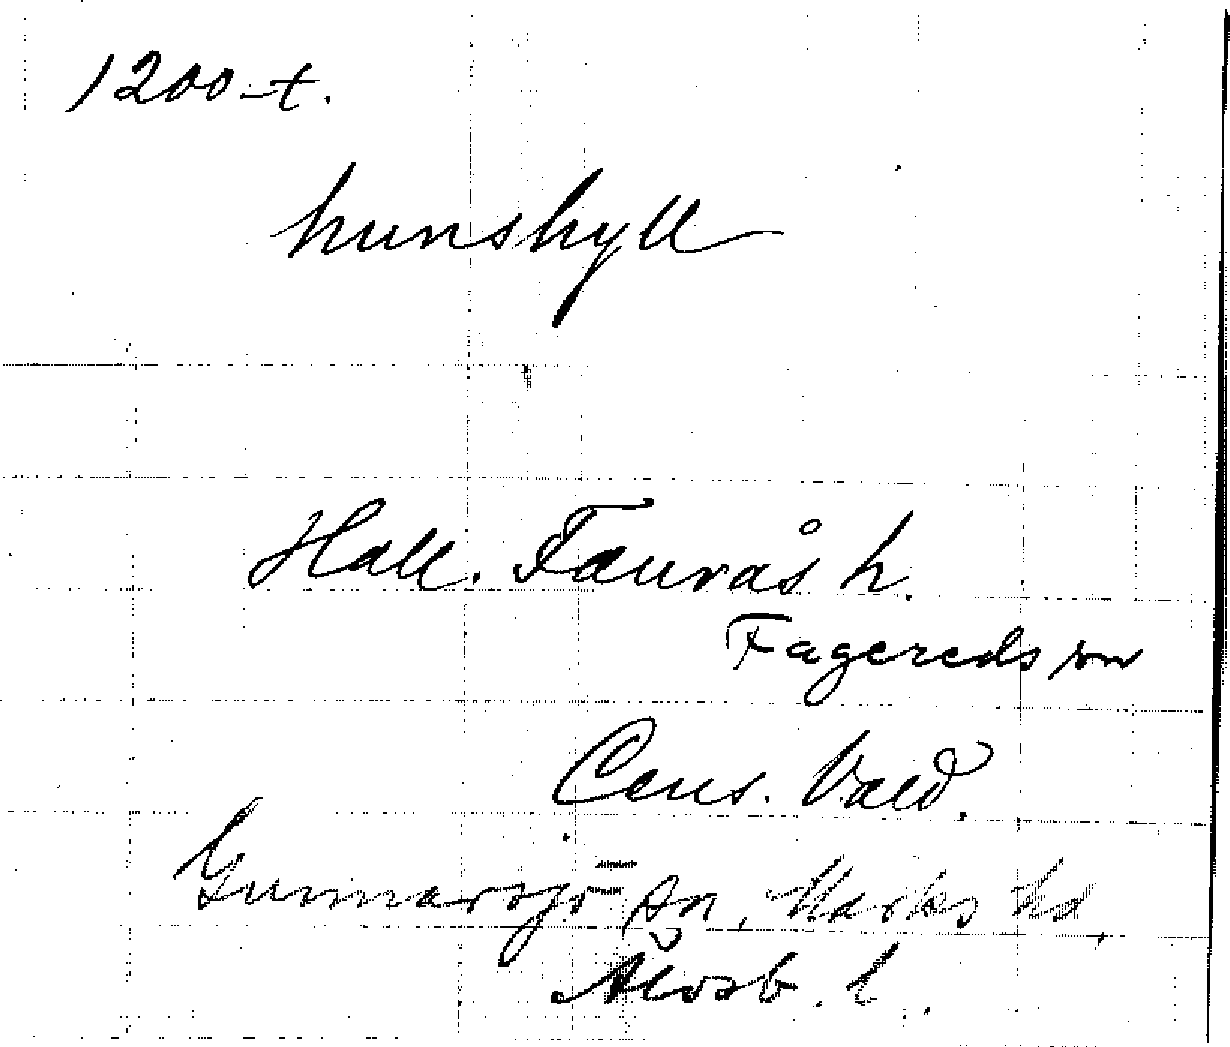 1200-t.
hunshyll
Hall. Faurås h.
Fagereds sn
Cens. Vald.
Gunnarsjö sn, Marks hd,
Älvsb. l.